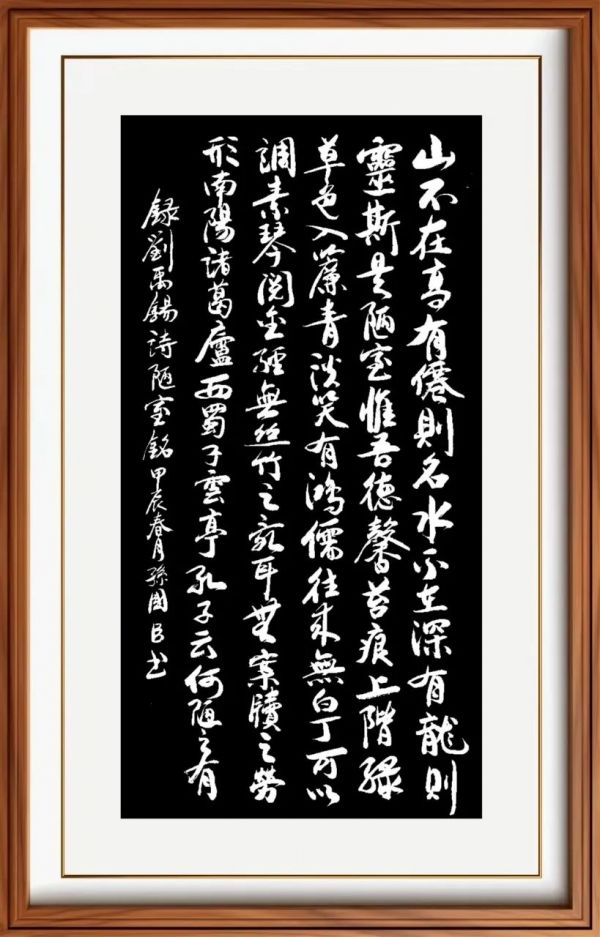 山不在高有僊則名水不在深有龍則
靈斯是陋室惟吾德馨苔痕上階緑
草色入簾青談笑有鴻儒往來無白丁可以
調素琴閱金經無丝竹之亂耳無案牘之勞
形南陽諸葛廬西蜀子雲亭孔子云何陋之有
録劉禹錫詩陋室銘甲辰春月孫國民书